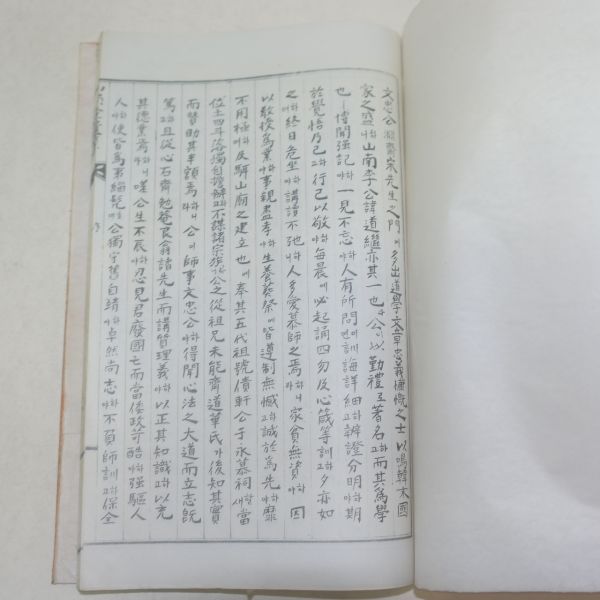 文忠公淵齋宋先生之門에多出道學文章忠義慷慨之士以鳴韓末國
家之盛하니山南李公諱道繼亦其一也라公이以勤禮로著名고而其爲學
也ㅣ博聞强記하야一見不忘하야人有所問이면訓誨詳細고辨證分明하야期
於覺悟乃已고行己以敬하야每晨에必起誦四勿及心箴等訓고夕亦如
之하야終日危坐하야講讀不弛하니人多愛慕師之焉라家貧無資하야因
以敎授爲業하야事親盡孝하야生養葬祭에皆遵制無憾고誠於爲先하야靡
不用極하야及駬山廟之建立也에奉其五代祖號債軒公于永慕祠새當
位土四斗落을獨自擔辦하되不謀諸宗族公之從祖兄未能齋道華氏가後知其實
而贊助其半額焉라公이師事文忠公하야得聞心法之大道而立志旣
篤하고且從心石齋勉菴艮翁諸先生而講質理義하야以正其知識고以充
其德業焉하니嗟公生不辰하야忍見君廢國亡而當倭政苛酷하야强驅人
人하야使皆爲弟緇髡公獨守舊自靖하야卓然尚志하야不負師訓고保全